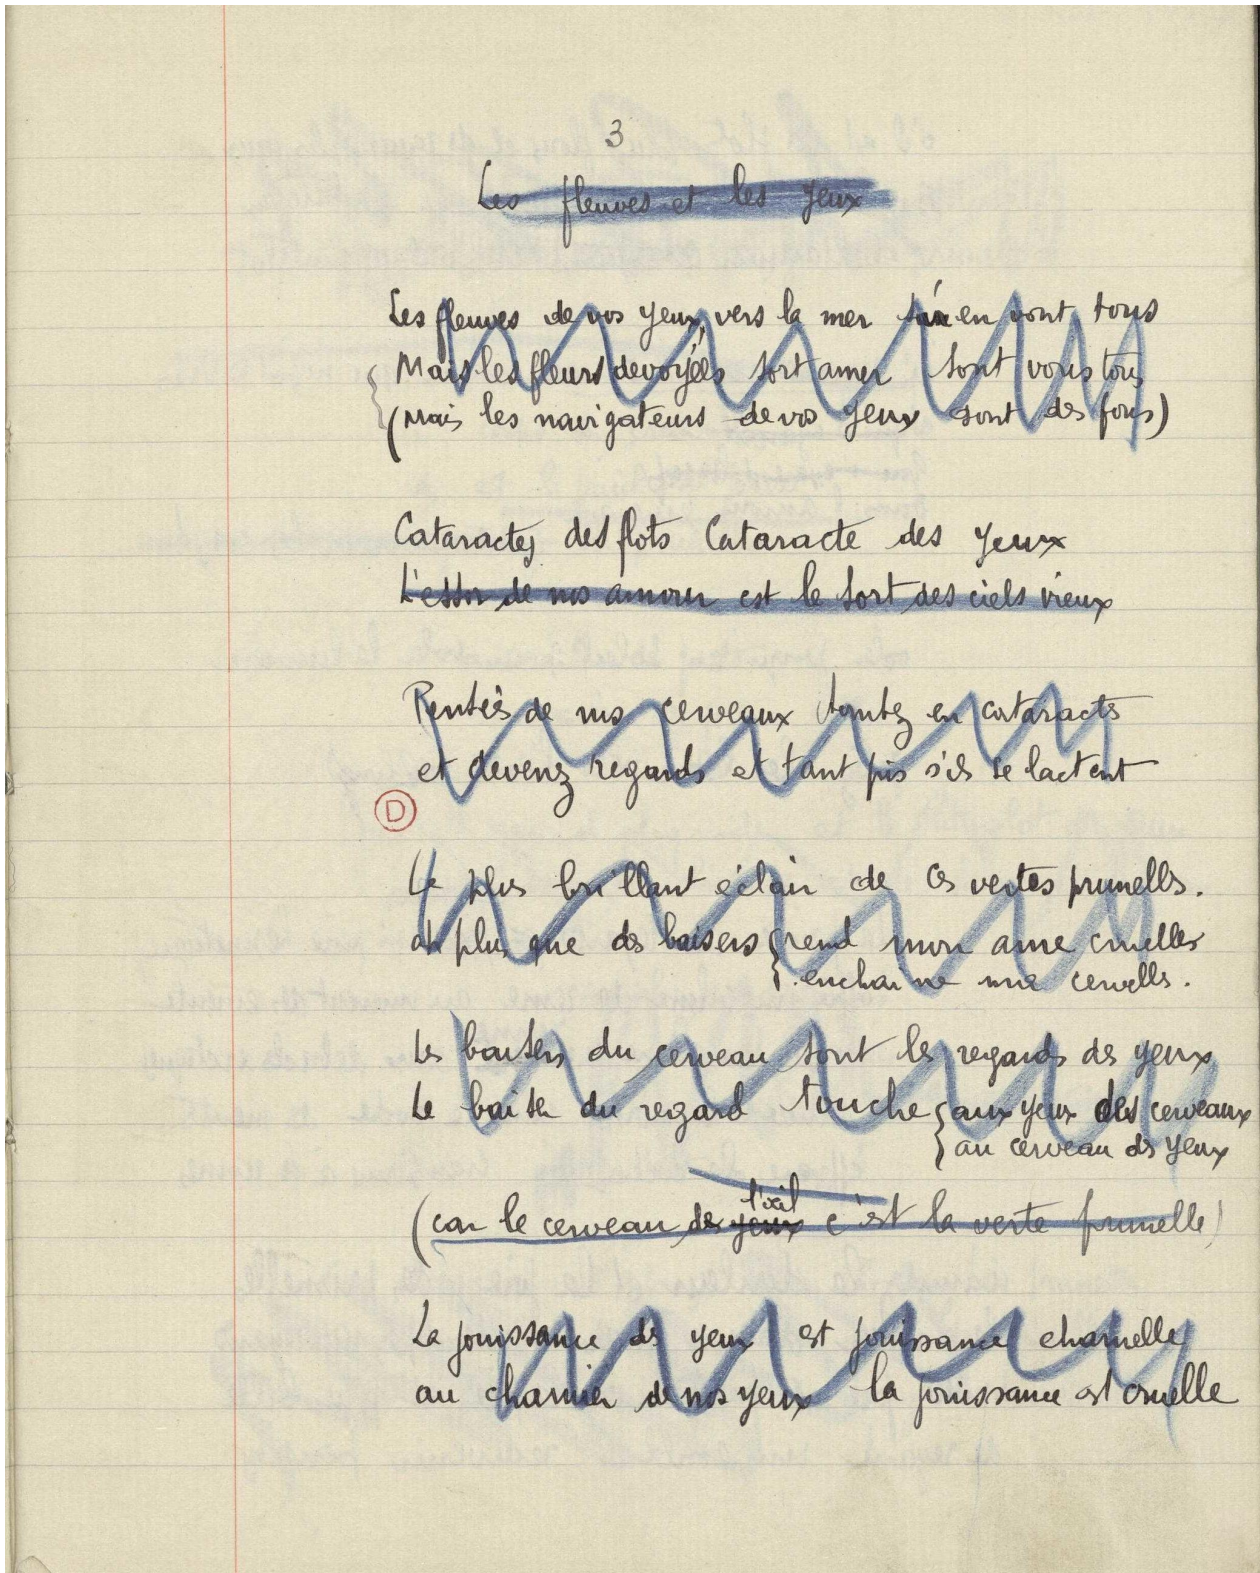 3
Les fleuves et les yeux
Les fleuves de vos yeux, vers la mer en vont tous
Mais les fleurs devoyées sort amer sont vous tous
(Mais les navigateurs de vos yeux sont des fous)
Cataractes des flots Cataracte des yeux
L'essor de nos amours est le sort des ciels vieux
de nos cerveaux tombez en cataractes
et devenez regards et tant pis s'ils se lactent
D
Le plus brillant éclair de ces vertes prunelles.
plus que des baisers rend mon ame cruelles
enchaine ma cervelles.
Les baisers du cerveau sont les regards des yeux
Le baiser du regard touche aux yeux des cerveaux
au cerveau des yeux
l'œil
(car le cerveau de yeux c'est la verte prunelle)
La jouissance des yeux est jouissance charnelle
au charnier de nos yeux la jouissance est cruelle